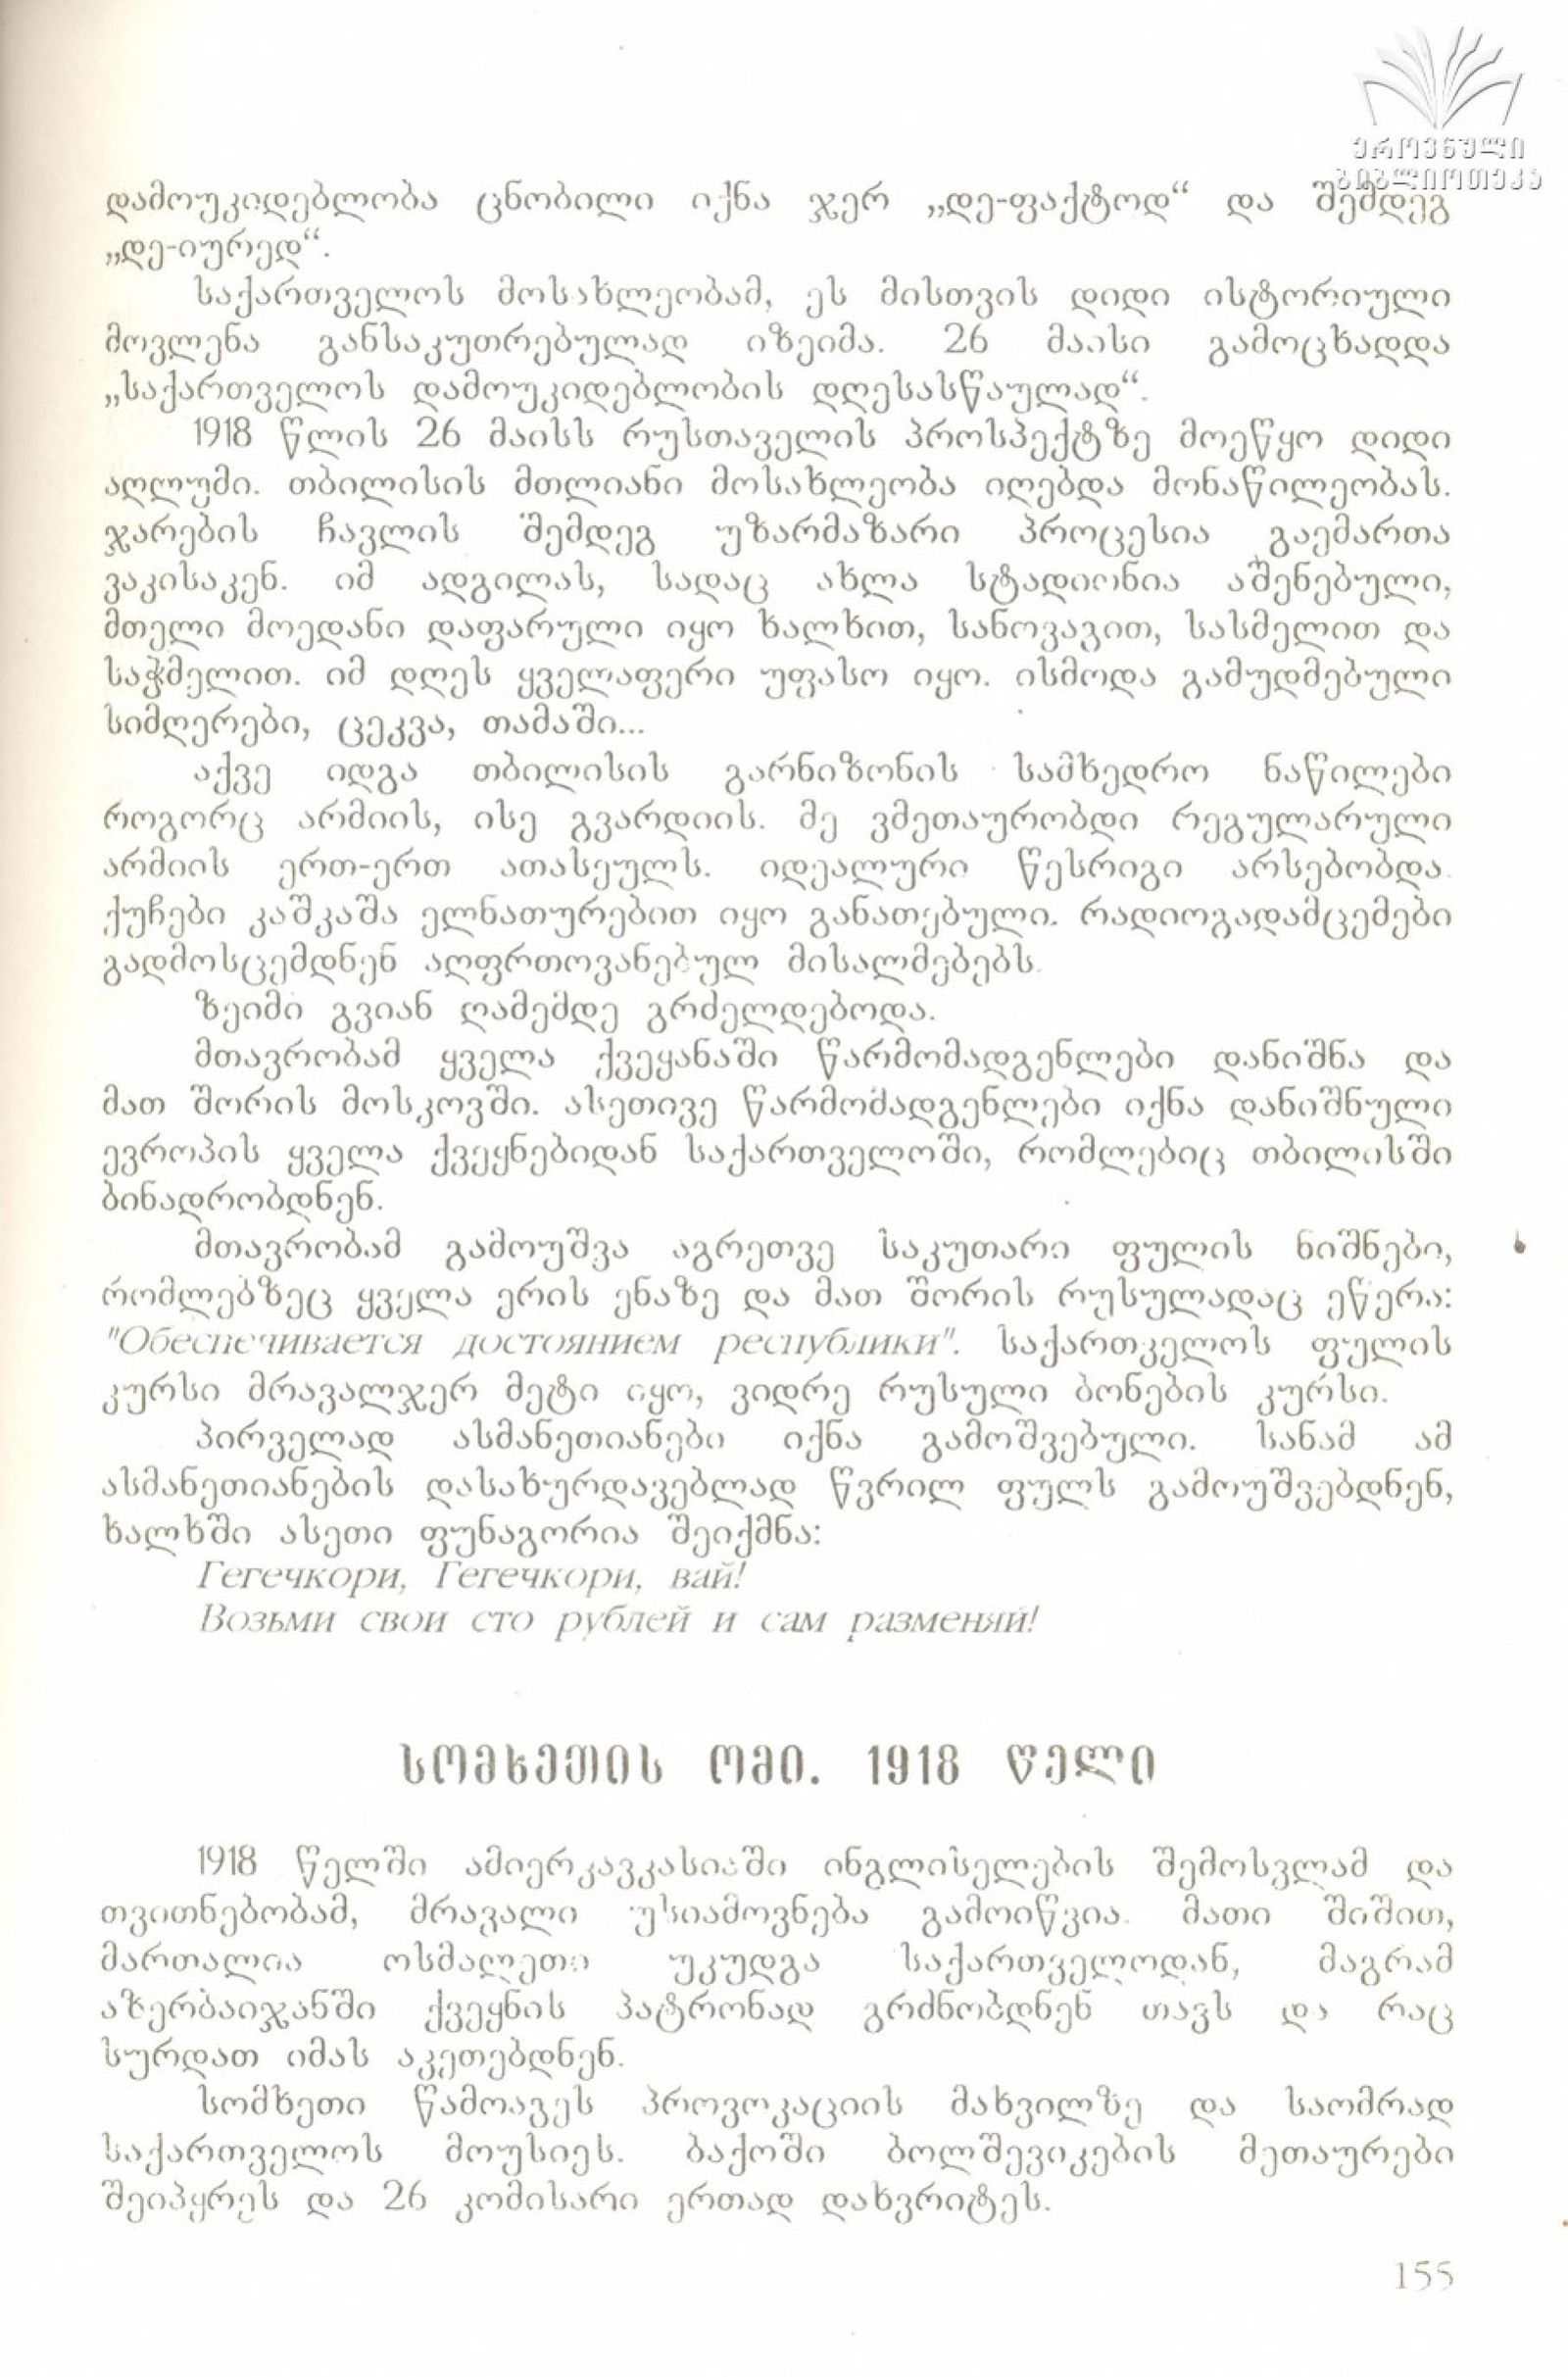 ეროვნული
ბიბლიოთეკა
დამოუკიდებლობა ცნობილი იქნა ჯერ „დე-ფაქტოდ“ და შემდეგ
„დე-იურედ“.
საქართველოს მოსახლეობამ, ეს მისთვის დიდი ისტორიული
მოვლენა განსაკუთრებულად იზეიმა. 26 მაისი გამოცხადდა
„საქართველოს დამოუკიდებლობის დღესასწაულად“.
1918 წლის 26 მაისს რუსთაველის პროსპექტზე მოეწყო დიდი
აღლუმი. თბილისის მთლიანი მოსახლეობა იღებდა მონაწილეობას.
ჯარების ჩავლის შემდეგ უზარმაზარი პროცესია გაემართა
ვაკისაკენ. იმ ადგილას, სადაც ახლა სტადიონია აშენებული,
მთელი მოედანი დაფარული იყო ხალხით, სანოვაგით, სასმელით და
საჭმელით. იმ დღეს ყველაფერი უფასო იყო. ისმოდა გამუდმებული
სიმღერები, ცეკვა, თამაში...
აქვე იდგა თბილისის გარნიზონის სამხედრო ნაწილები
როგორც არმიის, ისე გვარდიის. მე ვმეთაურობდი რეგულარული
არმიის ერთ-ერთ ათასეულს. იდეალური წესრიგი არსებობდა.
ქუჩები კაშკაშა ელნათურებით იყო განათებული. რადიოგადამცემები
გადმოსცემდნენ აღფრთოვანებულ მისალმებებს.
ზეიმი გვიან ღამემდე გრძელდებოდა.
მთავრობამ ყველა ქვეყანაში წარმომადგენლები დანიშნა და
მათ შორის მოსკოვში. ასეთივე წარმომადგენლები იქნა დანიშნული
ევროპის ყველა ქვეყნებიდან საქართველოში, რომლებიც თბილისში
ბინადრობდნენ.
მთავრობამ გამოუშვა აგრეთვე საკუთარი ფულის ნიშნები,
რომლებზეც ყველა ერის ენაზე და მათ შორის რუსულადაც ეწერა:
"Обеспечивается достоянием республики". საქართველოს ფულის
კურსი მრავალჯერ მეტი იყო, ვიდრე რუსული ბონების კურსი.
პირველად ასმანეთიანები იქნა გამოშვებული. სანამ ამ
ასმანეთიანების დასახურდავებლად წვრილ ფულს გამოუშვებდნენ,
ხალხში ასეთი ფუნაგორია შეიქმნა:
Гегечкори, Гегечкори, вай!
Возьми свои сто рублей и сам разменяй!
სომხეთის ომი. 1918 წელი
1918 წელში ამიერკავკასიაში ინგლისელების შემოსვლამ და
თვითნებობამ, მრავალი უსიამოვნება გამოიწვია. მათი შიშით,
მართალია ოსმალეთი უკუდგა საქართველოდან, მაგრამ
აზერბაიჯანში ქვეყნის პატრონად გრძნობდნენ თავს და რაც
სურდათ იმას აკეთებდნენ.
სომხეთი წამოაგეს პროვოკაციის მახვილზე და საომრად
საქართველოს მოუსიეს. ბაქოში ბოლშევიკების მეთაურები
შეიპყრეს და 26 კომისარი ერთად დახვრიტეს.
155